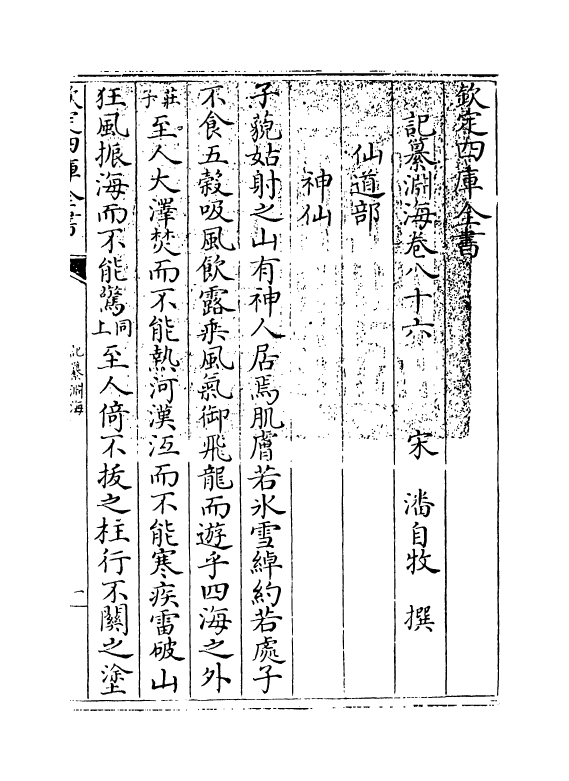 欽定四庫全書
記纂淵海卷八十六　宋　潘自牧　撰
仙道部
神仙
子藐姑射之山有神人居焉肌膚若氷雪綽約若處子
不食五榖吸風飲露乗風氣御飛龍而遊乎四海之外
莊子至人大澤焚而不能熱河漢沍而不能寒疾雷破山
狂風振海而不能驚同上至人倚不拔之柱行不關之塗
欽定四庫全書
記纂淵海